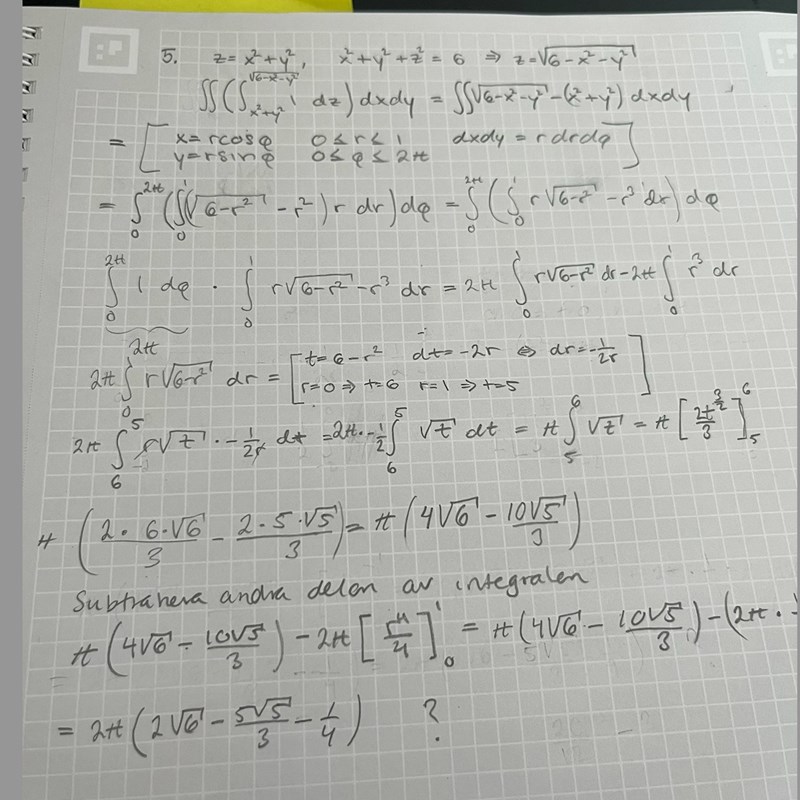 5. z = x² + y², x² + y² + z² = 6 ⇒ z = √(6-x²-y²)
∬(∫_{x²+y²}^{√(6-x²-y²)} 1 dz) dxdy = ∬√(6-x²-y²) - (x²+y²) dxdy
= [x = rcosφ 0 ≤ r ≤ 1 dxdy = rdrdφ
y = rsinφ 0 ≤ φ ≤ 2π]
= ∫_0^{2π} (∫_0^1 (√(6-r²) - r²) r dr) dφ = ∫_0^{2π} (∫_0^1 r√(6-r²) - r³ dr) dφ
∫_0^{2π} 1 dφ · ∫_0^1 r√(6-r²) - r³ dr = 2π ∫_0^1 r√(6-r²) dr - 2π ∫_0^1 r³ dr
2π
2π ∫_0^1 r√(6-r²) dr = [t = 6-r² dt = -2r ⇔ dr = -1/2r
r=0 ⇒ t=6 r=1 ⇒ t=5]
2π ∫_6^5 r√t · -1/2r dt = 2π · -1/2 ∫_6^5 √t dt = π ∫_5^6 √t = π [2t^{3/2}/3]_5^6
π (2·6·√6/3 - 2·5·√5/3) = π (4√6 - 10√5/3)
Subtrahera andra delen av integralen
π (4√6 - 10√5/3) - 2π [r⁴/4]_0^1 = π (4√6 - 10√5/3) - (2π ·
= 2π (2√6 - 5√5/3 - 1/4) ?